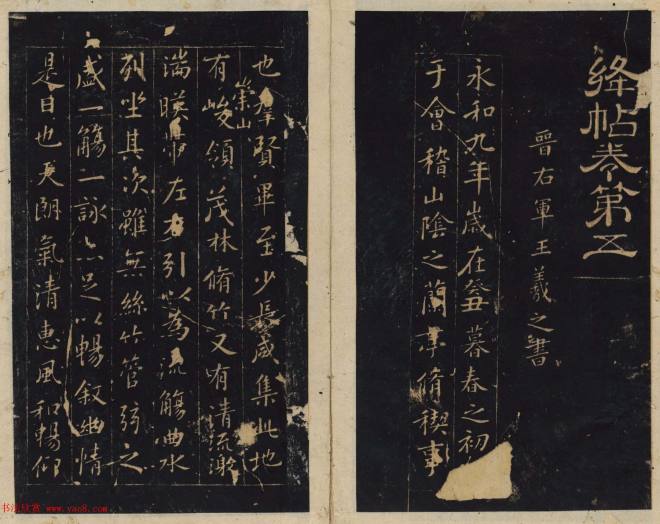 絳帖卷第五
晉右軍王羲之書
永和九年歲在癸丑暮春之初
于會稽山陰之蘭亭脩稧事
也羣賢畢至少長咸集此地
有崇山峻領茂林脩竹又有清流激
湍暎帶左右引以為流觴曲水
列坐其次雖無絲竹管弦之
盛一觴一詠亦足以暢敘幽情
是日也天朗氣清惠風和暢仰
书法欣赏 www.yac8.com